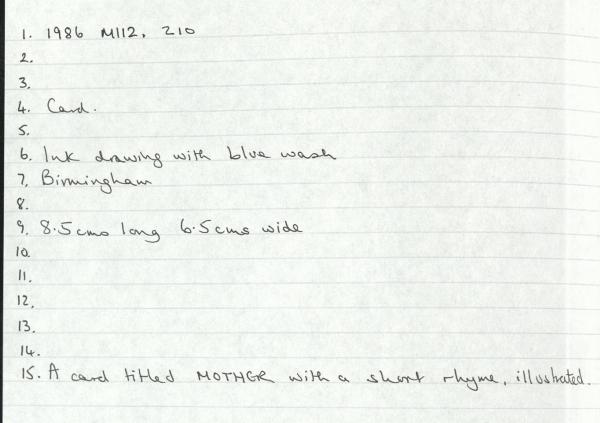 1. 1986 M112, 210
2.
3.
4. Card.
5.
6. Ink drawing with blue wash
7. Birmingham
8.
9. 8.5cms long 6.5cms wide
10.
11.
12.
13.
14.
15. A card titled MOTHER with a short rhyme, illustrated.